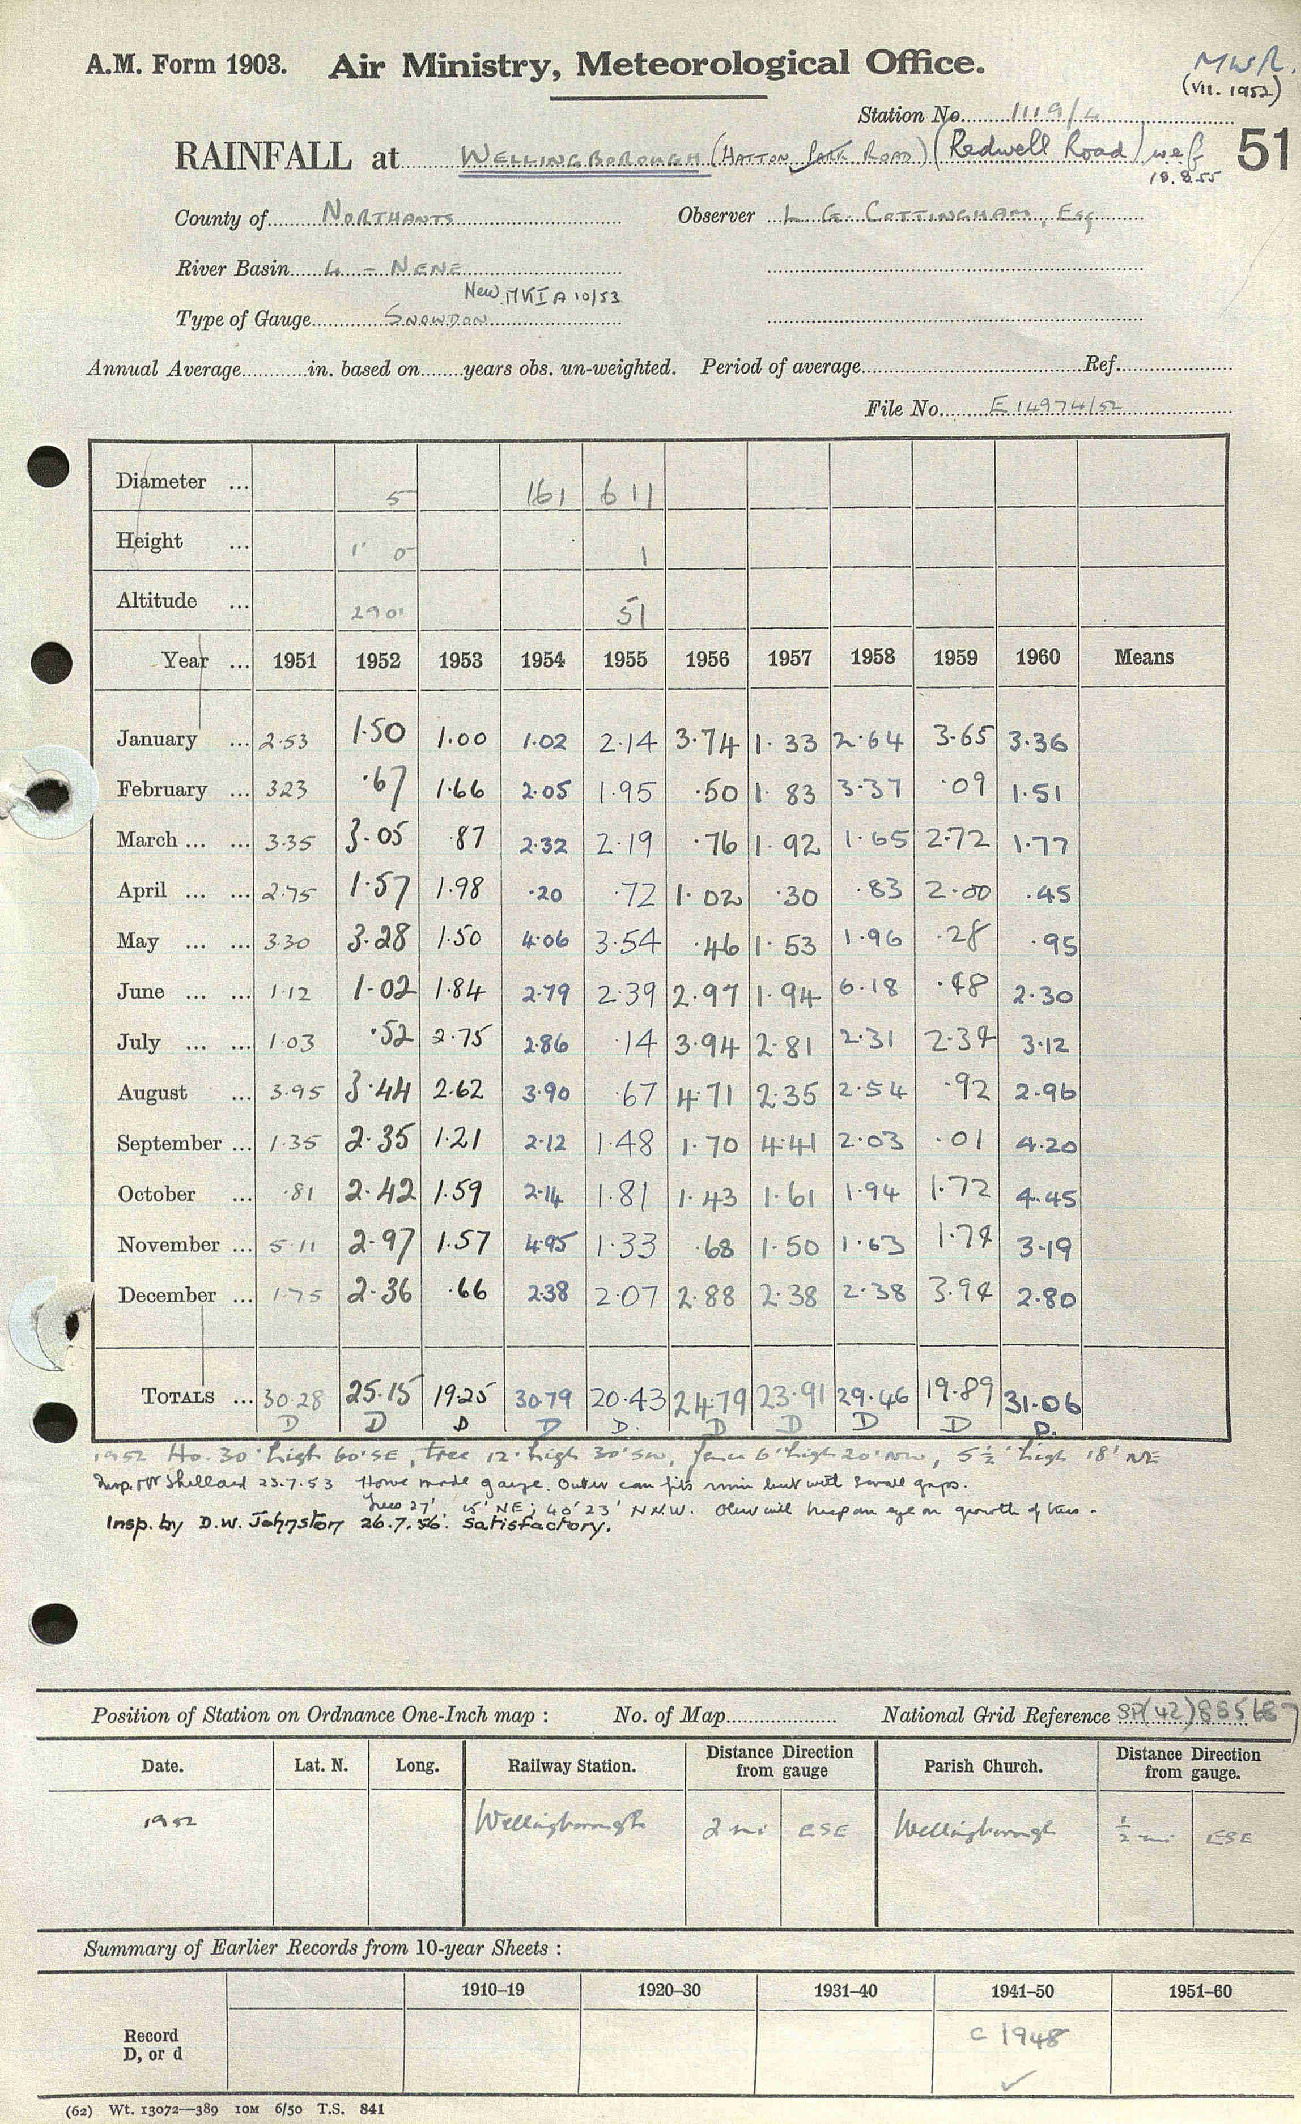 A.M. Form 1903. Air Ministry, Meteorological Office.
MWR.
(VII. 1952)
Station No. 1119/4
RAINFALL at WELLINGBOROUGH (HATTON PARK ROAD) (Redwell Road) wef 51
18.8.55
County of NORTHANTS Observer L G COTTINGHAM, Esq
River Basin 4 - NENE
New MKIA 10/53
Type of Gauge SNOWDON
Annual Average in. based on years obs. un-weighted. Period of average Ref.
File No. E 14974/52
Diameter ... 5 161 6 11
Height ... 1' 0 1
Altitude ... 290' 51
Year ... 1951 1952 1953 1954 1955 1956 1957 1958 1959 1960 Means
January ... 2.53 1.50 1.00 1.02 2.14 3.74 1.33 2.64 3.65 3.36
February ... 323 .67 1.66 2.05 1.95 .50 1.83 3.37 .09 1.51
March ... ... 3.35 3.05 .87 2.32 2.19 .76 1.92 1.65 2.72 1.77
April ... ... 2.75 1.57 1.98 .20 .72 1.02 .30 .83 2.00 .45
May ... ... 3.30 3.28 1.50 4.06 3.54 .46 1.53 1.96 .28 .95
June ... ... 1.12 1.02 1.84 2.79 2.39 2.97 1.94 6.18 .48 2.30
July ... ... 1.03 .52 2.75 2.86 .14 3.94 2.81 2.31 2.34 3.12
August ... 3.95 3.44 2.62 3.90 .67 4.71 2.35 2.54 .92 2.96
September ... 1.35 2.35 1.21 2.12 1.48 1.70 4.41 2.03 .01 4.20
October ... .81 2.42 1.59 2.14 1.81 1.43 1.61 1.94 1.72 4.45
November ... 5.11 2.97 1.57 4.95 1.33 .68 1.50 1.63 1.74 3.19
December ... 1.75 2.36 .66 2.38 2.07 2.88 2.38 2.38 3.94 2.80
TOTALS ... 30.28 25.15 19.25 30.79 20.43 24.79 23.91 29.46 19.89 31.06
D D D D D. D D D D D.
1952 Ho. 30' high 60' SE, tree 12' high 30' SW, fence 6' high 20' NW, 5½' high 18' NE
Insp. Shellard 23.7.53 Home made gauge. Outer can fits rim but with small gaps.
Trees 27' 15' NE; 40' 23' NNW. Obsr will keep an eye on growth of trees.
Insp. by D.W. Johnston 26.7.56. Satisfactory.
Position of Station on Ordnance One-Inch map : No. of Map National Grid Reference SP(42)885687
Date. Lat. N. Long. Railway Station. Distance Direction from gauge Parish Church. Distance Direction from gauge.
1952 Wellingborough 2 mi ESE Wellingborough ½ mi ESE
Summary of Earlier Records from 10-year Sheets :
1910–19 1920–30 1931–40 1941–50 1951–60
Record
D, or d
C 1948
✓
(62) Wt. 13072—389 10M 6/50 T.S. 841